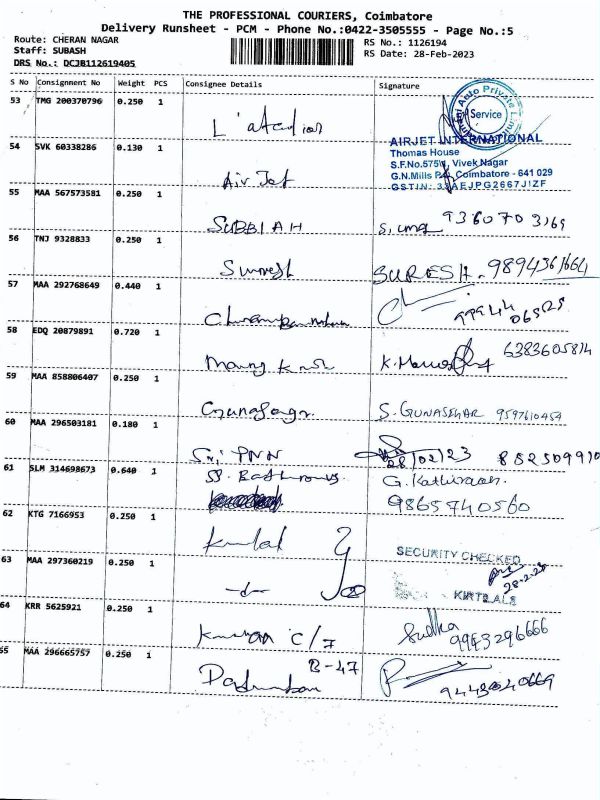 THE PROFESSIONAL COURIERS, Coimbatore
Delivery Runsheet - PCM - Phone No.:0422-3505555 - Page No.:5
Route: CHERAN NAGAR
RS No.: 1126194
Staff: SUBASH
RS Date: 28-Feb-2023
DRS No.: DCJB112619405
S No Consignment No Weight PCS Consignee Details Signature
53 TMG 200370796 0.250 1
Auto Private Service
54 SVK 60338286 0.130 1 Air Jet
AIRJET INTERNATIONAL
Thomas House
S.F.No.575/ Vivek Nagar
G.N.Mills P.O, Coimbatore - 641 029
GSTIN: 33AEJPG2667J1ZF
55 MAA 567573581 0.250 1 SUBBIAH 9360703169
56 TNJ 9328833 0.250 1 Suresh SURESH. 9894361664
57 MAA 292768649 0.440 1
58 EDQ 20879891 0.720 1 6383605814
59 MAA 858806407 0.250 1 S. GUNASEKAR 9597610454
60 MAA 296503181 0.180 1 Sri PNN 28/02/23
61 SLM 314698673 0.640 1 G. Kathiravan.
9865740560
62 KTG 7166953 0.250 1
SECURITY CHECKED
63 MAA 297360219 0.250 1 28-2-23
KIRTILALS
64 KRR 5625921 0.250 1 C/7 Sudha
9943296666
65 MAA 296665757 0.250 1 B-47